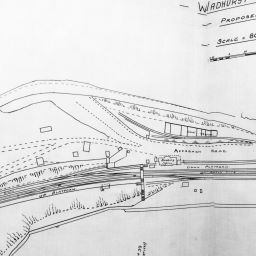 WADHURST
PROPOSE
SCALE = 80
APPROACH ROAD
DOWN PLATFORM
UP PLATFORM